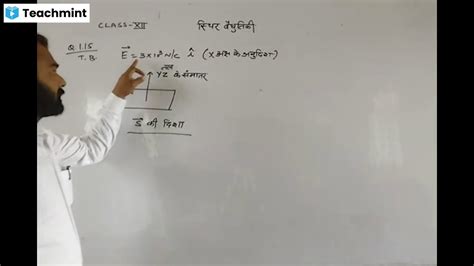 Teachmint
CLASS-XII स्थिर वैधुतिकी
Q 1.15 E⃗ = 3×10³ N/C î (X अक्ष के अनुदिश)
T.B.
YZ के समांतर
S⃗ की दिशा